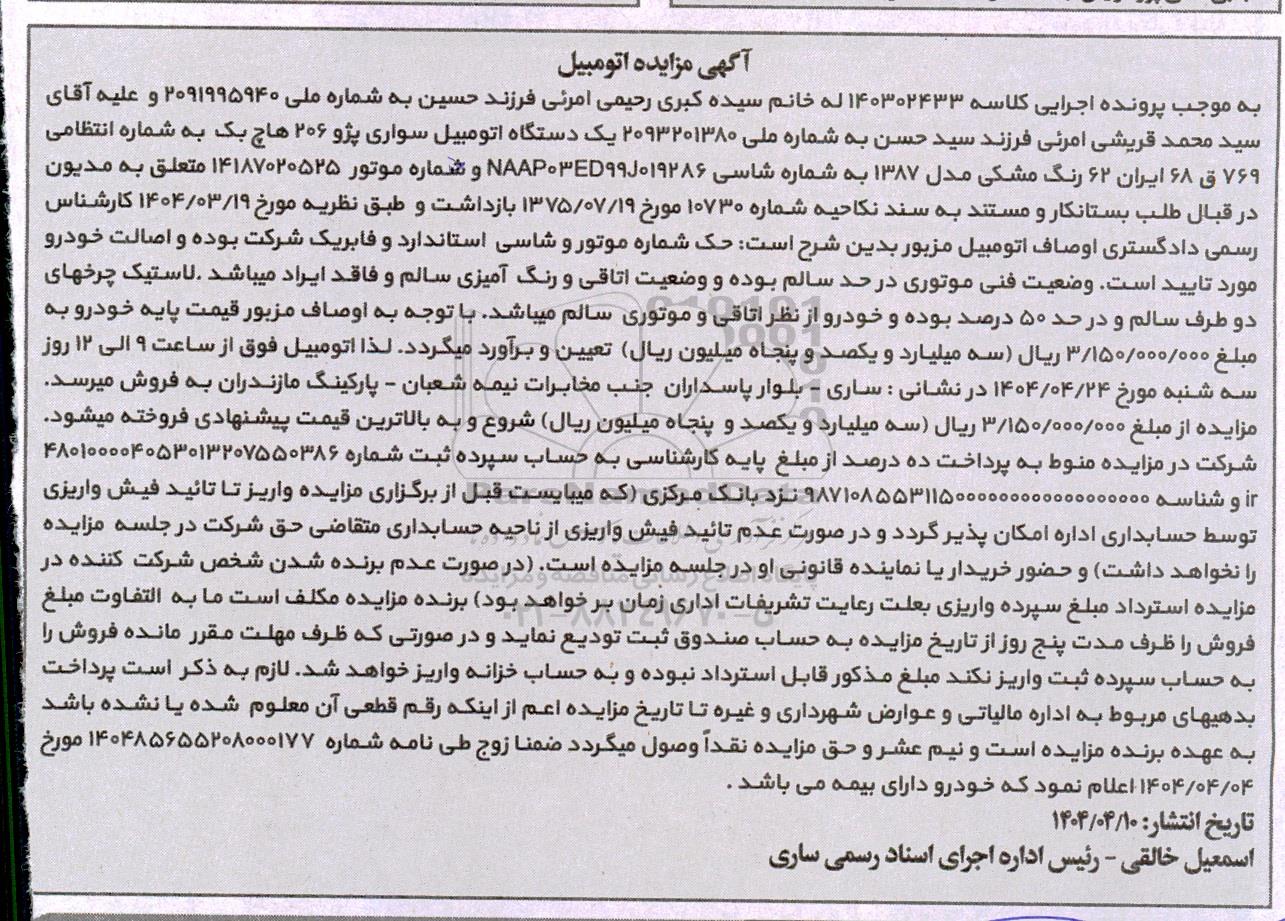 آگهی مزایده اتومبیل
به موجب پرونده اجرایی کلاسه ۱۴۰۳۰۲۴۳۳ له خانم سیده کبری رحیمی امرئی فرزند حسین به شماره ملی ۲۰۹۱۹۹۵۹۴۰ و علیه آقای
سید محمد قریشی امرئی فرزند سید حسن به شماره ملی ۲۰۹۳۲۰۱۳۸۰ یک دستگاه اتومبیل سواری پژو ۲۰۶ هاچ بک به شماره انتظامی
۷۶۹ ق ۶۸ ایران ۶۲ رنگ مشکی مدل ۱۳۸۷ به شماره شاسی NAAP۰۳ED۹۹J۰۱۹۲۸۶ و شماره موتور ۱۴۱۸۷۰۲۰۵۲۵ متعلق به مدیون
در قبال طلب بستانکار و مستند به سند نکاحیه شماره ۱۰۷۳۰ مورخ ۱۳۷۵/۰۷/۱۹ بازداشت و طبق نظریه مورخ ۱۴۰۴/۰۳/۱۹ کارشناس
رسمی دادگستری اوصاف اتومبیل مزبور بدین شرح است: حک شماره موتور و شاسی استاندارد و فابریک شرکت بوده و اصالت خودرو
مورد تایید است. وضعیت فنی موتوری در حد سالم بوده و وضعیت اتاقی و رنگ آمیزی سالم و فاقد ایراد میباشد .لاستیک چرخهای
دو طرف سالم و در حد ۵۰ درصد بوده و خودرو از نظر اتاقی و موتوری سالم میباشد. با توجه به اوصاف مزبور قیمت پایه خودرو به
مبلغ ۳/۱۵۰/۰۰۰/۰۰۰ ریال (سه میلیارد و یکصد و پنجاه میلیون ریال) تعیین و برآورد میگردد. لذا اتومبیل فوق از ساعت ۹ الی ۱۲ روز
سه شنبه مورخ ۱۴۰۴/۰۴/۲۴ در نشانی : ساری - بلوار پاسداران جنب مخابرات نیمه شعبان - پارکینگ مازندران به فروش میرسد.
مزایده از مبلغ ۳/۱۵۰/۰۰۰/۰۰۰ ریال (سه میلیارد و یکصد و پنجاه میلیون ریال) شروع و به بالاترین قیمت پیشنهادی فروخته میشود.
شرکت در مزایده منوط به پرداخت ده درصد از مبلغ پایه کارشناسی به حساب سپرده ثبت شماره ۴۸۰۱۰۰۰۰۴۰۵۳۰۱۳۲۰۷۵۵۰۳۸۶
ir و شناسه ۹۸۷۱۰۸۵۵۳۱۱۵۰۰۰۰۰۰۰۰۰۰۰۰۰۰۰۰۰۰ نزد بانک مرکزی (که میبایست قبل از برگزاری مزایده واریز تا تائید فیش واریزی
توسط حسابداری اداره امکان پذیر گردد و در صورت عدم تائید فیش واریزی از ناحیه حسابداری متقاضی حق شرکت در جلسه مزایده
را نخواهد داشت) و حضور خریدار یا نماینده قانونی او در جلسه مزایده است. (در صورت عدم برنده شدن شخص شرکت کننده در
مزایده استرداد مبلغ سپرده واریزی بعلت رعایت تشریفات اداری زمان بر خواهد بود) برنده مزایده مکلف است ما به التفاوت مبلغ
فروش را ظرف مدت پنج روز از تاریخ مزایده به حساب صندوق ثبت تودیع نماید و در صورتی که ظرف مهلت مقرر مانده فروش را
به حساب سپرده ثبت واریز نکند مبلغ مذکور قابل استرداد نبوده و به حساب خزانه واریز خواهد شد. لازم به ذکر است پرداخت
بدهیهای مربوط به اداره مالیاتی و عوارض شهرداری و غیره تا تاریخ مزایده اعم از اینکه رقم قطعی آن معلوم شده یا نشده باشد
به عهده برنده مزایده است و نیم عشر و حق مزایده نقداً وصول میگردد ضمنا زوج طی نامه شماره ۱۴۰۴۸۵۶۵۵۲۰۸۰۰۰۱۷۷ مورخ
۱۴۰۴/۰۴/۰۴ اعلام نمود که خودرو دارای بیمه می باشد .
تاریخ انتشار: ۱۴۰۴/۰۴/۱۰
اسمعیل خالقی - رئیس اداره اجرای اسناد رسمی ساری